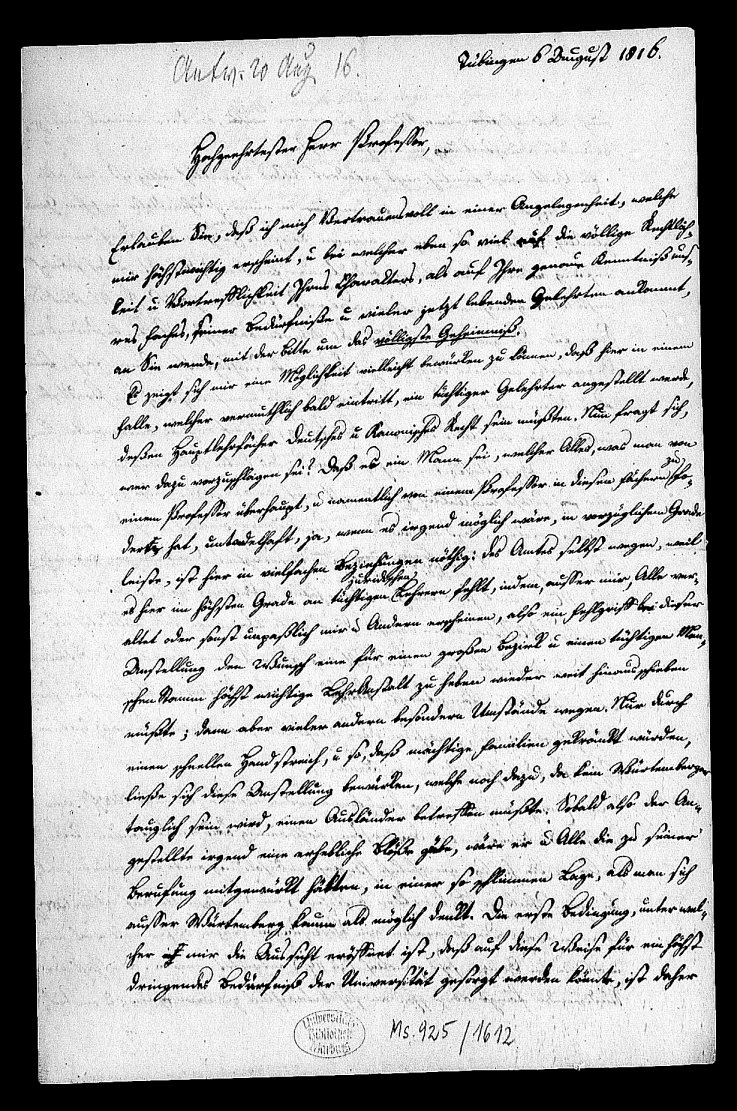 Antw: 20 Aug 16.
Tübingen 6 August 1816.
Hochgeehrtester Herr Professor,
Erlauben Sie, daß ich mich Vertrauensvoll in einer Angelegenheit, welche
mir höchstwichtig erscheint, u bei welcher eben so viel auf die völlige Rechtlich-
keit u Vortrefflichkeit Ihres Charakters, als auf Ihre genaue Kenntniß uns-
res Faches, seiner Bedürfniße u vieler jetzt lebenden Gelehrten ankommt,
an Sie wende, mit der Bitte um das völligste Geheimniß.
Es zeigt sich mir eine Möglichkeit vielleicht bewürken zu können, daß hier in einem
Falle, welcher vermuthlich bald eintritt, ein tüchtiger Gelehrter angestellt werde,
deßen Hauptlehrfächer Deutsches u Kanonisches Recht sein müßten. Nun fragt sich,
wer dazu vorzuschlagen sei? Daß es ein Mann sei, welcher Alles, was man von
einem Professor überhaupt, u namentlich von einem Professor in diesen Fächern zu fo-
dern hat, untadelhaft, ja, wenn es irgend möglich wäre, in vorzüglichem Grade
leiste, ist hier in vielfachen Beziehungen nöthig: des Amtes selbst wegen, weil
es hier im höchsten Grade an tüchtigen juridischen Lehrern fehlt, indem, ausser mir, Alle ver-
altet oder sonst unpaßlich mir u Andern erscheinen, also ein Fehlgriff bei dieser
Anstellung den Wunsch eine für einen großen Bezirk u einen tüchtigen Men-
schen Stamm höchst wichtige Lehranstalt zu heben wieder weit hinausschieben
müßte; dann aber vieler andern besondern Umstände wegen. Nur durch
einen schnellen Handstreich, u so, daß mächtige Familien gekränkt würden,
ließe sich diese Anstellung bewürken, welche noch dazu, da kein Würtemberger
tauglich sein wird, einen Ausländer betreffen müßte. Sobald also der An-
gestellte irgend eine erhebliche Blöße gäbe, wäre er u Alle die zu seiner
Berufung mitgewürkt hätten, in einer so schlimmen Lage, als man sich
ausser Würtemberg kaum als möglich denkt. Die erste Bedingung, unter wel-
cher mir die Aussicht eröffnet ist, daß auf diese Weise für ein höchst
dringendes Bedürfniß der Universität gesorgt werden könnte, ist daher
Universitäts
Bibliothek
Marburg
Ms. 925/1612